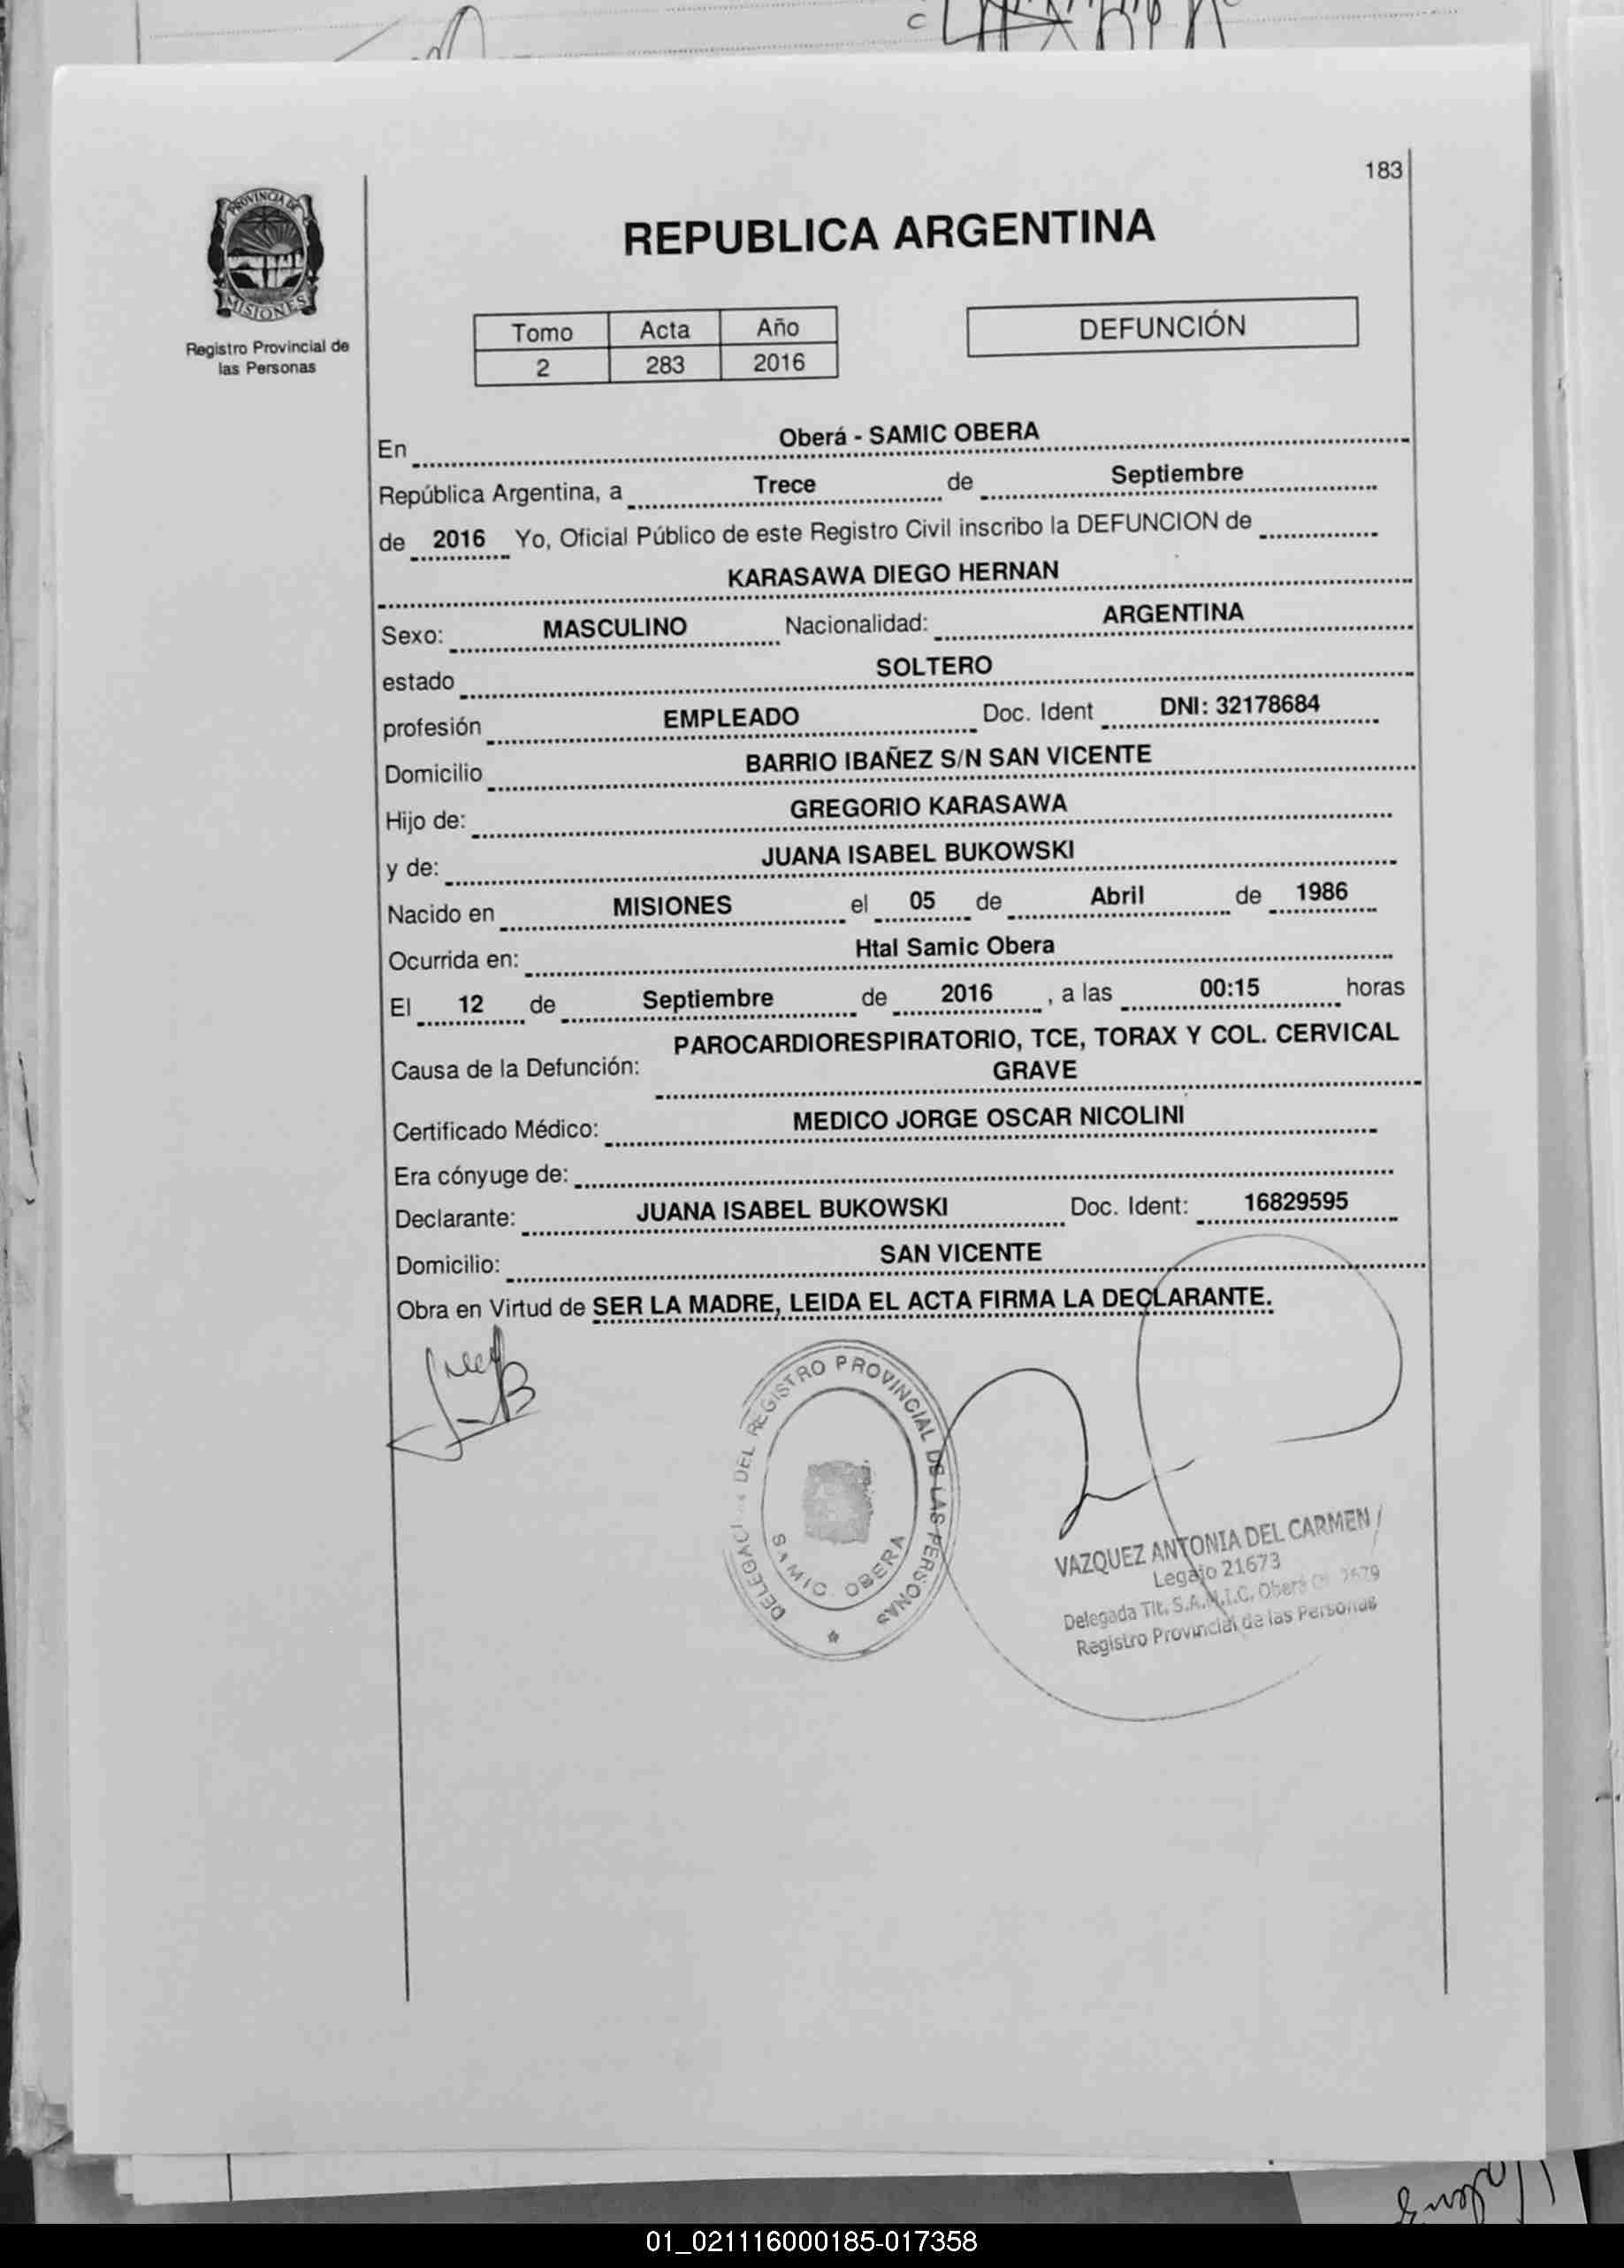 183
PROVINCIA DE
MISIONES
Registro Provincial de
las Personas
REPUBLICA ARGENTINA
Tomo Acta Año
2 283 2016
DEFUNCIÓN
En Oberá - SAMIC OBERA
República Argentina, a Trece de Septiembre
de 2016 Yo, Oficial Público de este Registro Civil inscribo la DEFUNCION de
KARASAWA DIEGO HERNAN
Sexo: MASCULINO Nacionalidad: ARGENTINA
estado SOLTERO
profesión EMPLEADO Doc. Ident DNI: 32178684
Domicilio BARRIO IBAÑEZ S/N SAN VICENTE
Hijo de: GREGORIO KARASAWA
y de: JUANA ISABEL BUKOWSKI
Nacido en MISIONES el 05 de Abril de 1986
Ocurrida en: Htal Samic Obera
El 12 de Septiembre de 2016 , a las 00:15 horas
PAROCARDIORESPIRATORIO, TCE, TORAX Y COL. CERVICAL
Causa de la Defunción: GRAVE
Certificado Médico: MEDICO JORGE OSCAR NICOLINI
Era cónyuge de:
Declarante: JUANA ISABEL BUKOWSKI Doc. Ident: 16829595
Domicilio: SAN VICENTE
Obra en Virtud de SER LA MADRE, LEIDA EL ACTA FIRMA LA DECLARANTE.
DEL REGISTRO PROVINCIAL DE LAS PERSONAS
SAMIC. OBERA
VAZQUEZ ANTONIA DEL CARMEN
Legajo 21673
Delegada Tit. S.A.M.I.C. Oberá
Registro Provincial de las Personas
01_021116000185-017358